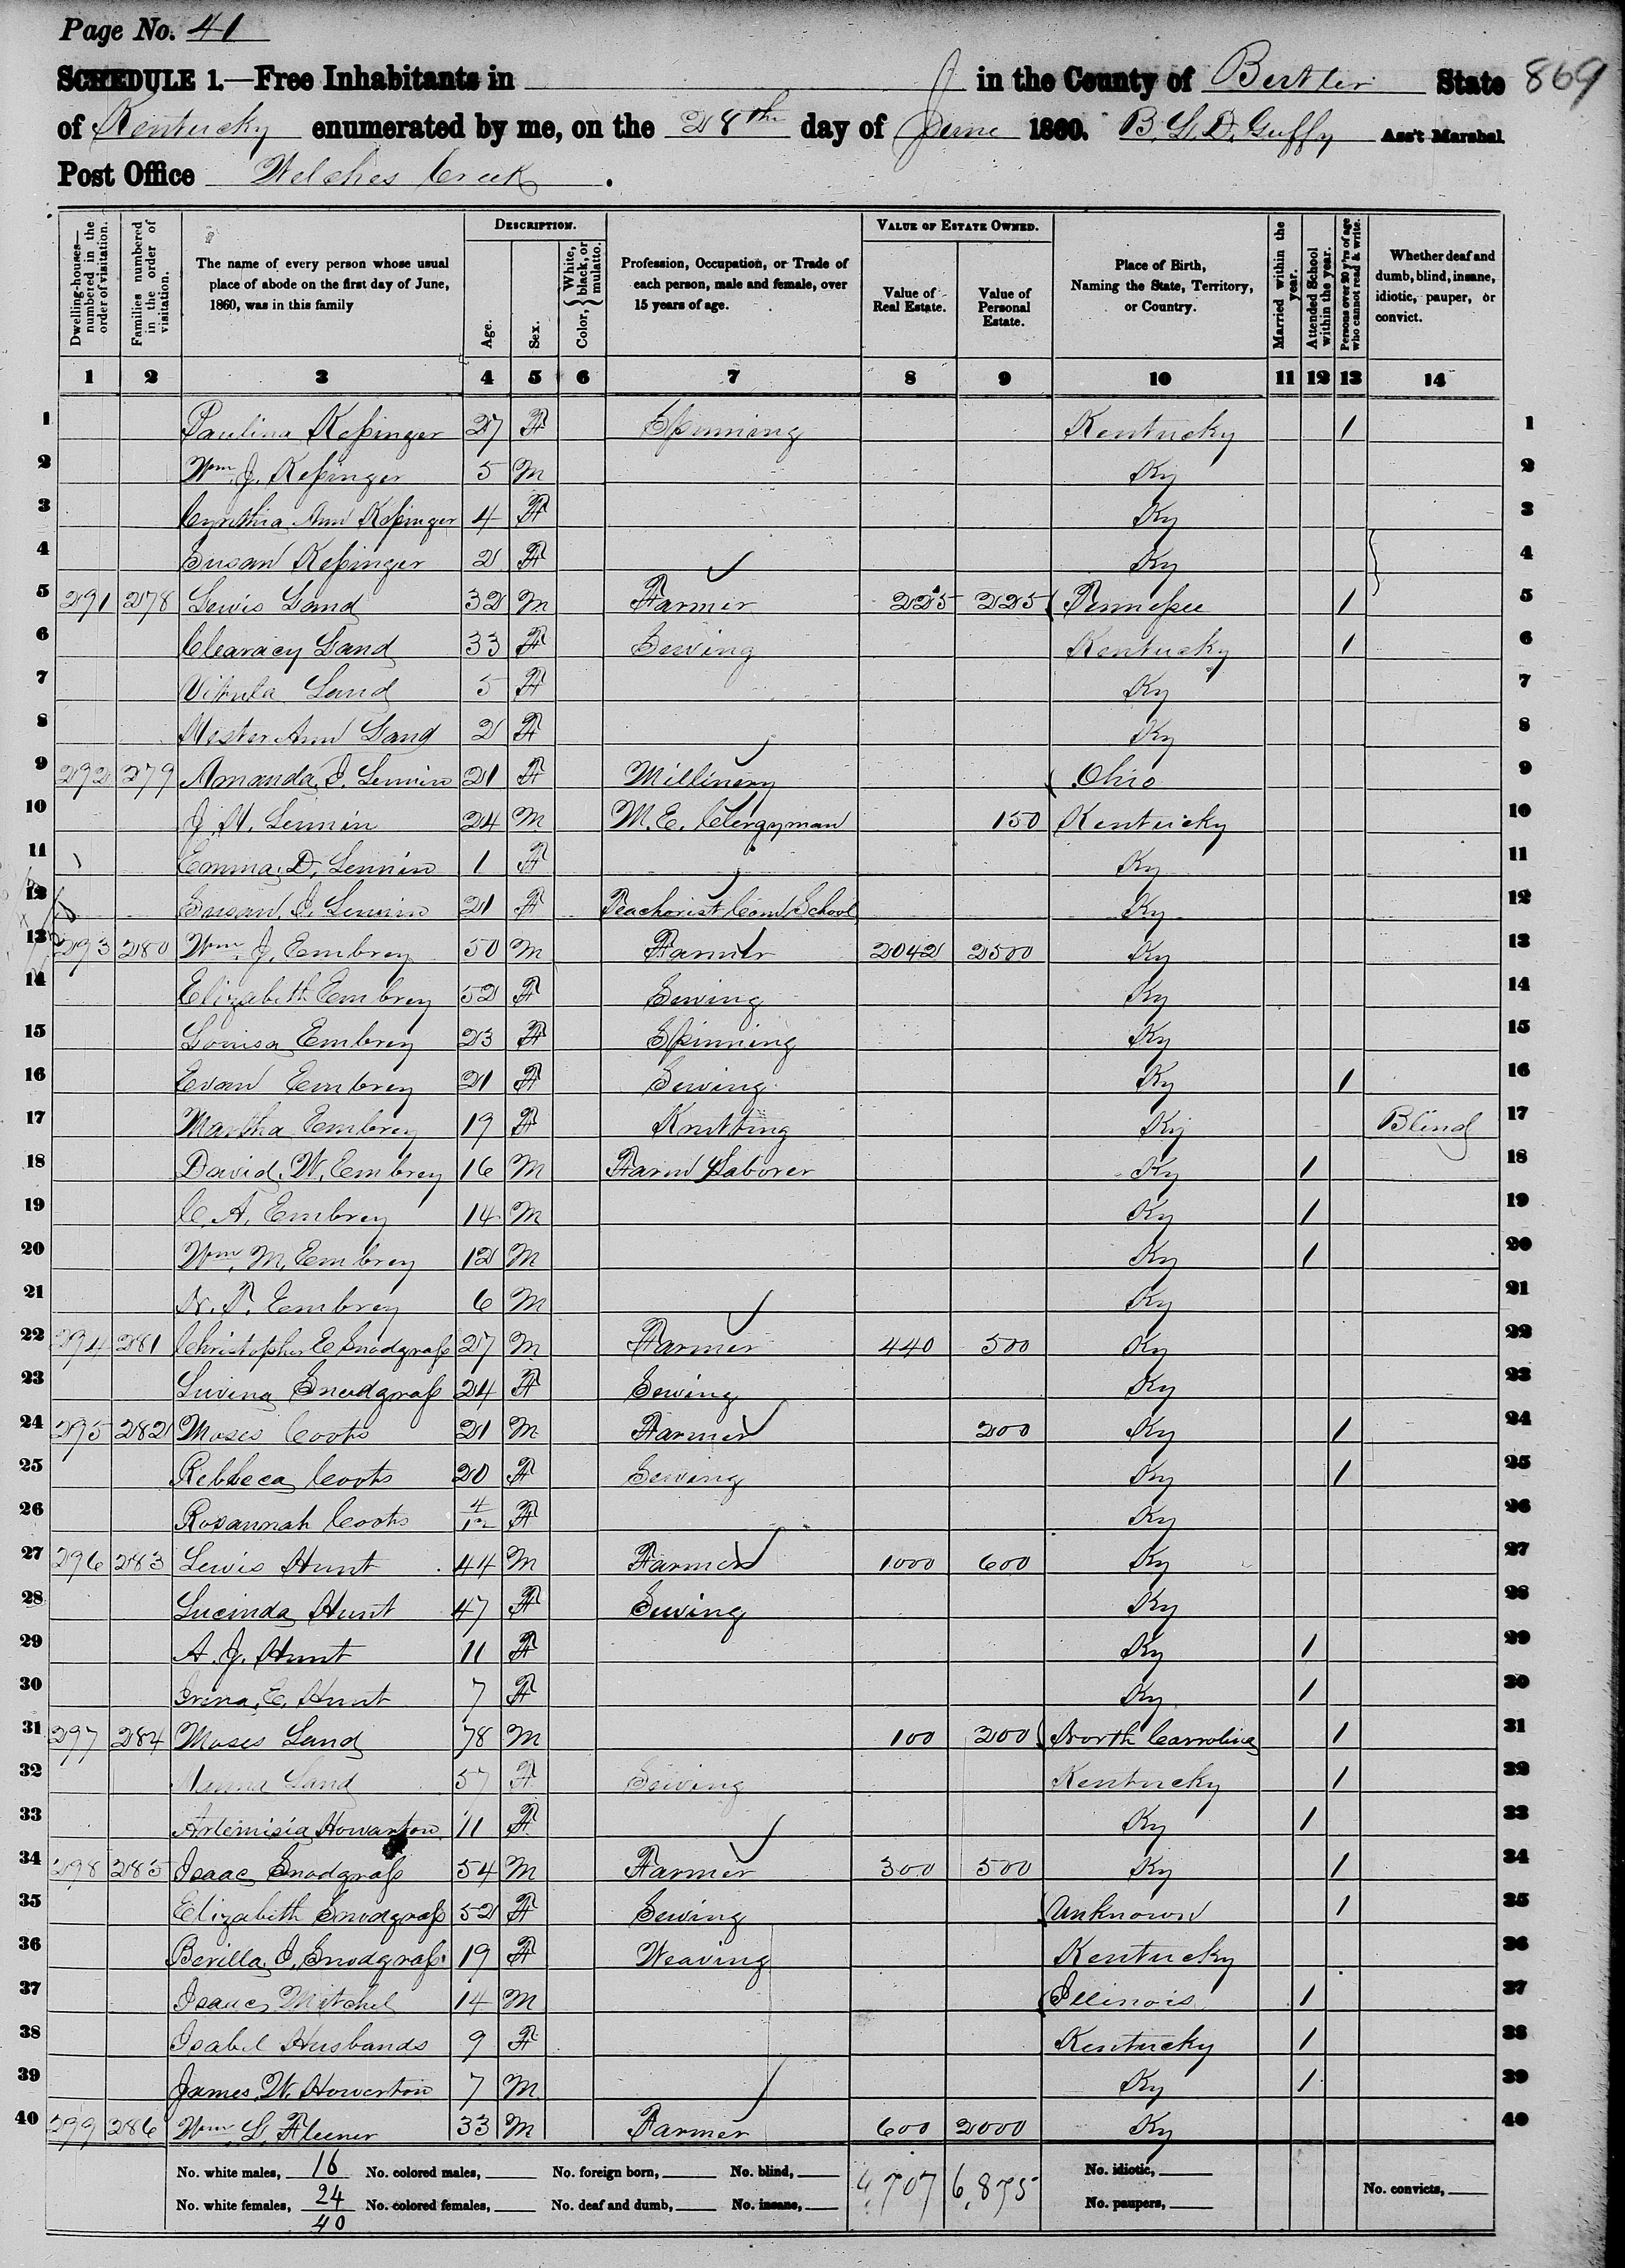 Page No. 41
SCHEDULE 1.—Free Inhabitants in in the County of Butler State 869
of Kentucky enumerated by me, on the 28th day of June 1860. B. L. D. Guffy Ass't Marshal
Post Office Welches Creek .
Dwelling-houses—numbered in the order of visitation.
Families numbered in the order of visitation.
The name of every person whose usual place of abode on the first day of June, 1860, was in this family
DESCRIPTION.
Age.
Sex.
Color, { White, black, or mulatto.
Profession, Occupation, or Trade of each person, male and female, over 15 years of age.
VALUE OF ESTATE OWNED.
Value of Real Estate.
Value of Personal Estate.
Place of Birth, Naming the State, Territory, or Country.
Married within the year.
Attended School within the year.
Persons over 20 y'rs of age who cannot read & write.
Whether deaf and dumb, blind, insane, idiotic, pauper, or convict.
1 2 3 4 5 6 7 8 9 10 11 12 13 14
1 Paulina Kessinger 27 F Spinning Kentucky 1 1
2 Wm J. Kessinger 5 M Ky 2
3 Cynthia Ann Kessinger 4 F Ky 3
4 Susan Kessinger 2 F Ky 4
5 291 278 Lewis Land 32 M Farmer 225 225 Tennessee 1 5
6 Clearacy Land 33 F Sewing Kentucky 1 6
7 Land 5 F Ky 7
8 Hester Ann Land 2 F Ky 8
9 292 279 Amanda J. 21 F Millinery Ohio 9
10 J. H. 24 M M. E. Clergyman 150 Kentucky 10
11 Emma D. 1 F Ky 11
12 Susan J. 21 F Com School Ky 12
13 293 280 Wm J. Embrey 50 M Farmer 2042 2500 Ky 13
14 Elizabeth Embrey 52 F Sewing Ky 14
15 Louisa Embrey 23 F Spinning Ky 15
16 Evan Embrey 21 F Sewing Ky 1 16
17 Martha Embrey 19 F Knitting Ky Blind 17
18 David W. Embrey 16 M Farm Laborer Ky 1 18
19 C. A. Embrey 14 M Ky 1 19
20 Wm. M. Embrey 12 M Ky 1 20
21 N. T. Embrey 6 M Ky 21
22 294 281 Christopher E Snodgrass 27 M Farmer 440 500 Ky 22
23 Luvina Snodgrass 24 F Sewing Ky 23
24 295 282 Moses Coots 21 M Farmer 200 Ky 1 24
25 Rebbeca Coots 20 F Sewing Ky 1 25
26 Rosannah Coots 4/12 F Ky 26
27 296 283 Lewis Hunt 44 M Farmer 1000 600 Ky 27
28 Lucinda Hunt 47 F Sewing Ky 28
29 A. J. Hunt 11 F Ky 1 29
30 Irena E. Hunt 7 F Ky 1 30
31 297 284 Moses Land 78 M 100 200 North Carrolina 1 31
32 Land 57 F Sewing Kentucky 1 32
33 Artemisia Howarton 11 F Ky 1 33
34 298 285 Isaac Snodgrass 54 M Farmer 300 500 Ky 1 34
35 Elizabeth Snodgrass 52 F Sewing Unknown 1 35
36 Berilla J. Snodgrass 19 F Weaving Kentucky 36
37 Isaac Mitchel 14 M Illinois 1 37
38 Isabel Husbands 9 F Kentucky 1 38
39 James W. Howerton 7 M Ky 1 39
40 299 286 Wm L. Fleener 33 M Farmer 600 2000 Ky 40
No. white males, 16 No. colored males, No. foreign born, No. blind, 4,707 6,875 No. idiotic, No. convicts,
No. white females, 24 No. colored females, No. deaf and dumb, No. insane, No. paupers,
40